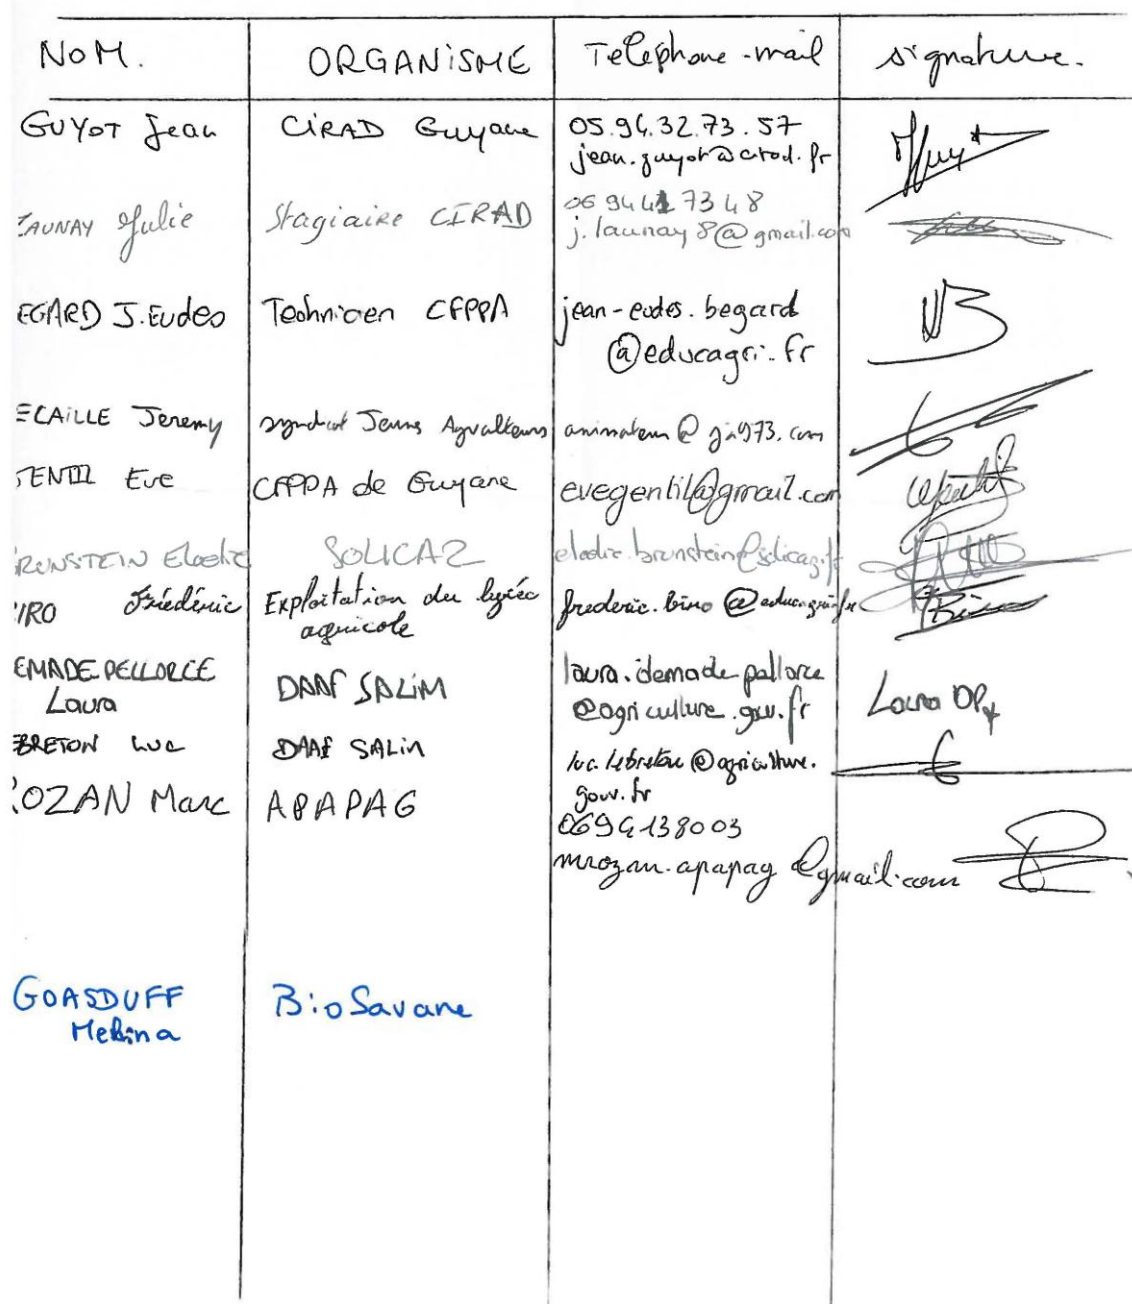 NOM. ORGANISME Telephone-mail signature.
GUYOT Jean CIRAD Guyane 05.94.32.73.57
jean.guyot@cirad.fr
LAUNAY Julie Stagiaire CIRAD 06 94 41 73 48
j.launay8@gmail.com
EGARD J.Eudes Technicien CFPPA jean-eudes.begard
@educagri.fr
ECAILLE Jeremy syndicat Jeunes Agriculteurs animateur@ja973.com
GENTIL Eve CFPPA de Guyane evegentil@gmail.com
BRUNSTEIN Elodie SOLICAZ elodie.brunstein@solicaz.fr
BIRO Frédéric Exploitation du lycée frederic.biro@educagri.fr
agricole
EMADE PELLORCE laura.demade-pellorce
Laura DAAF SALIM @agriculture.gouv.fr Laura DP
EBRETON Luc DAAF SALIM luc.lebreton@agriculture.
gouv.fr
ROZAN Marc APAPAG
0694138003
mrozan.apapag@gmail.com
GOASDUFF BioSavane